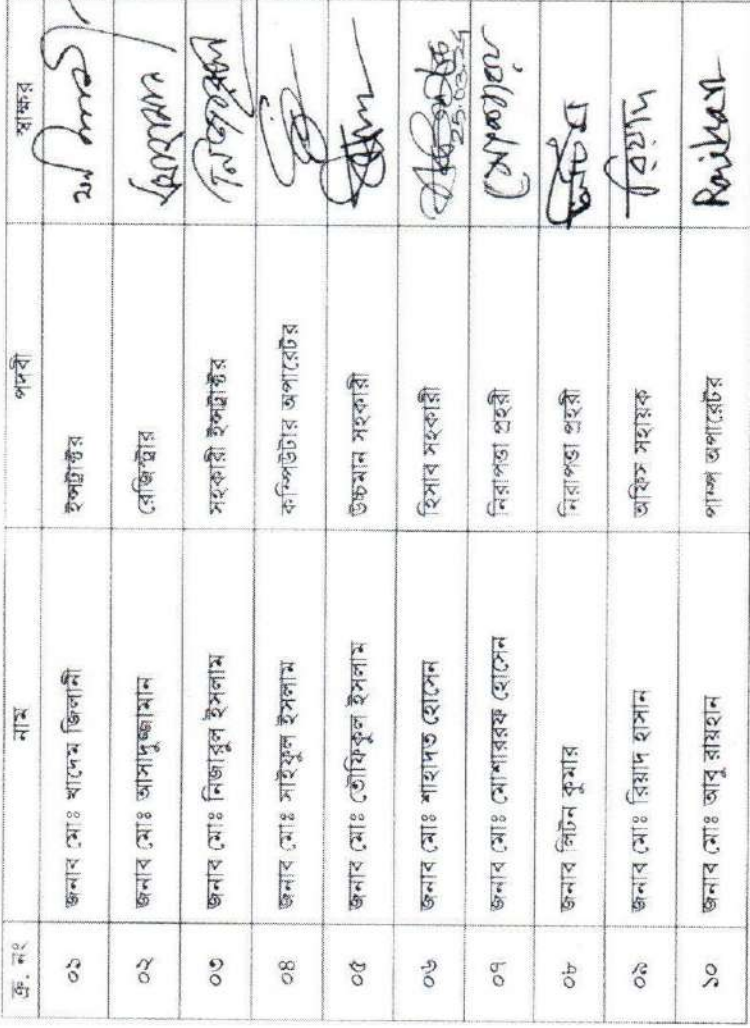 ক্র. নং নাম পদবী স্বাক্ষর
০১ জনাব মোঃ খাদেম জিলানী ইন্সট্রাক্টর
০২ জনাব মোঃ আসাদুজ্জামান রেজিস্ট্রার
০৩ জনাব মোঃ নিজাবুল ইসলাম সহকারী ইন্সট্রাক্টর
০৪ জনাব মোঃ সাইফুল ইসলাম কম্পিউটার অপারেটর
০৫ জনাব মোঃ তৌফিকুল ইসলাম উচ্চমান সহকারী
০৬ জনাব মোঃ শাহাদত হোসেন হিসাব সহকারী 25.03.25
০৭ জনাব মোঃ মোশাররফ হোসেন নিরাপত্তা প্রহরী
০৮ জনাব লিটন কুমার নিরাপত্তা প্রহরী
০৯ জনাব মোঃ রিয়াদ হাসান অফিস সহায়ক রিয়াদ
১০ জনাব মোঃ আবু রায়হান পাম্প অপারেটর Raihan